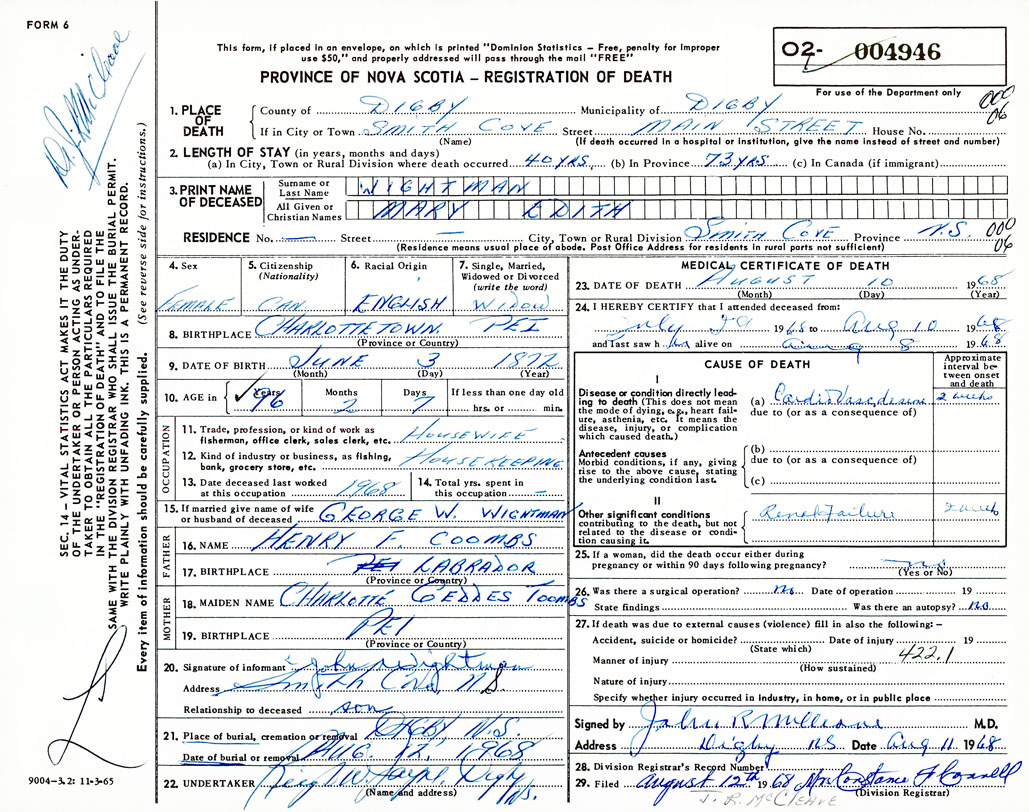 FORM 6
This form, if placed in an envelope, on which is printed "Dominion Statistics – Free, penalty for improper
use $50," and properly addressed will pass through the mail "FREE"
PROVINCE OF NOVA SCOTIA – REGISTRATION OF DEATH
02- 004946
For use of the Department only
000
06
1. PLACE OF DEATH
County of DIGBY Municipality of DIGBY
If in City or Town SMITH COVE Street MAIN STREET House No.
(Name) (If death occurred in a hospital or institution, give the name instead of street and number)
2. LENGTH OF STAY (in years, months and days)
(a) In City, Town or Rural Division where death occurred 40 YRS. (b) In Province 73 YRS. (c) In Canada (if immigrant)
3. PRINT NAME OF DECEASED
Surname or Last Name WIGHTMAN
All Given or Christian Names MARY EDITH
RESIDENCE No. — Street — City, Town or Rural Division SMITH COVE Province N.S. 000
06
(Residence means usual place of abode. Post Office Address for residents in rural parts not sufficient)
4. Sex FEMALE
5. Citizenship (Nationality) CAN.
6. Racial Origin ENGLISH
7. Single, Married, Widowed or Divorced (write the word) WIDOW
8. BIRTHPLACE CHARLOTTETOWN. PEI
(Province or Country)
9. DATE OF BIRTH JUNE 3 1872
(Month) (Day) (Year)
10. AGE in Years 96 Months 2 Days 7 If less than one day old
hrs. or min.
OCCUPATION
11. Trade, profession, or kind of work as
fisherman, office clerk, sales clerk, etc. HOUSEWIFE
12. Kind of industry or business, as fishing,
bank, grocery store, etc. HOUSEKEEPING
13. Date deceased last worked
at this occupation 1968
14. Total yrs. spent in
this occupation —
15. If married give name of wife
or husband of deceased GEORGE W. WIGHTMAN
FATHER
16. NAME HENRY F. COOMBS
17. BIRTHPLACE PEI LABRADOR
(Province or Country)
MOTHER
18. MAIDEN NAME CHARLOTTE GEDDES TOOMBS
19. BIRTHPLACE PEI
(Province or Country)
20. Signature of informant John Wightman
Address Smith Cove, N.S.
Relationship to deceased son
21. Place of burial, cremation or removal DIGBY N.S.
Date of burial or removal AUG. 12, 1968
22. UNDERTAKER Digby N.S.
(Name and address)
MEDICAL CERTIFICATE OF DEATH
23. DATE OF DEATH AUGUST 10 1968
(Month) (Day) (Year)
24. I HEREBY CERTIFY that I attended deceased from:
July 19 1965 to Aug 10 1968
and last saw her alive on Aug 8 1968
CAUSE OF DEATH
Approximate interval between onset and death
I
Disease or condition directly leading to death (This does not mean
the mode of dying, e.g., heart failure, asthenia, etc. It means the
disease, injury, or complication
which caused death.)
(a) Cardio Vasc disease 2 weeks
due to (or as a consequence of)
Antecedent causes
Morbid conditions, if any, giving
rise to the above cause, stating
the underlying condition last.
(b)
due to (or as a consequence of)
(c)
II
Other significant conditions
contributing to the death, but not
related to the disease or condition causing it.
Renal Failure 2 weeks
25. If a woman, did the death occur either during
pregnancy or within 90 days following pregnancy? no
(Yes or No)
26. Was there a surgical operation? no Date of operation 19
State findings Was there an autopsy? no
27. If death was due to external causes (violence) fill in also the following: –
Accident, suicide or homicide? Date of injury 19
(State which) 422.1
Manner of injury
(How sustained)
Nature of injury
Specify whether injury occurred in industry, in home, or in public place
Signed by John R. M.D.
Address Digby N.S. Date Aug 11 1968
28. Division Registrar's Record Number
29. Filed August 12th 1968 Mrs Constance F Connell
J. R. McCLEAVE (Division Registrar)
SEC. 14 – VITAL STATISTICS ACT MAKES IT THE DUTY
OF THE UNDERTAKER OR PERSON ACTING AS UNDER-
TAKER TO OBTAIN ALL THE PARTICULARS REQUIRED
IN THE "REGISTRATION OF DEATH" AND TO FILE THE
SAME WITH THE DIVISION REGISTRAR WHO SHALL ISSUE THE BURIAL PERMIT.
WRITE PLAINLY WITH UNFADING INK. THIS IS A PERMANENT RECORD.
Every item of information should be carefully supplied. (See reverse side for instructions.)
9004-3.2: 11-3-65